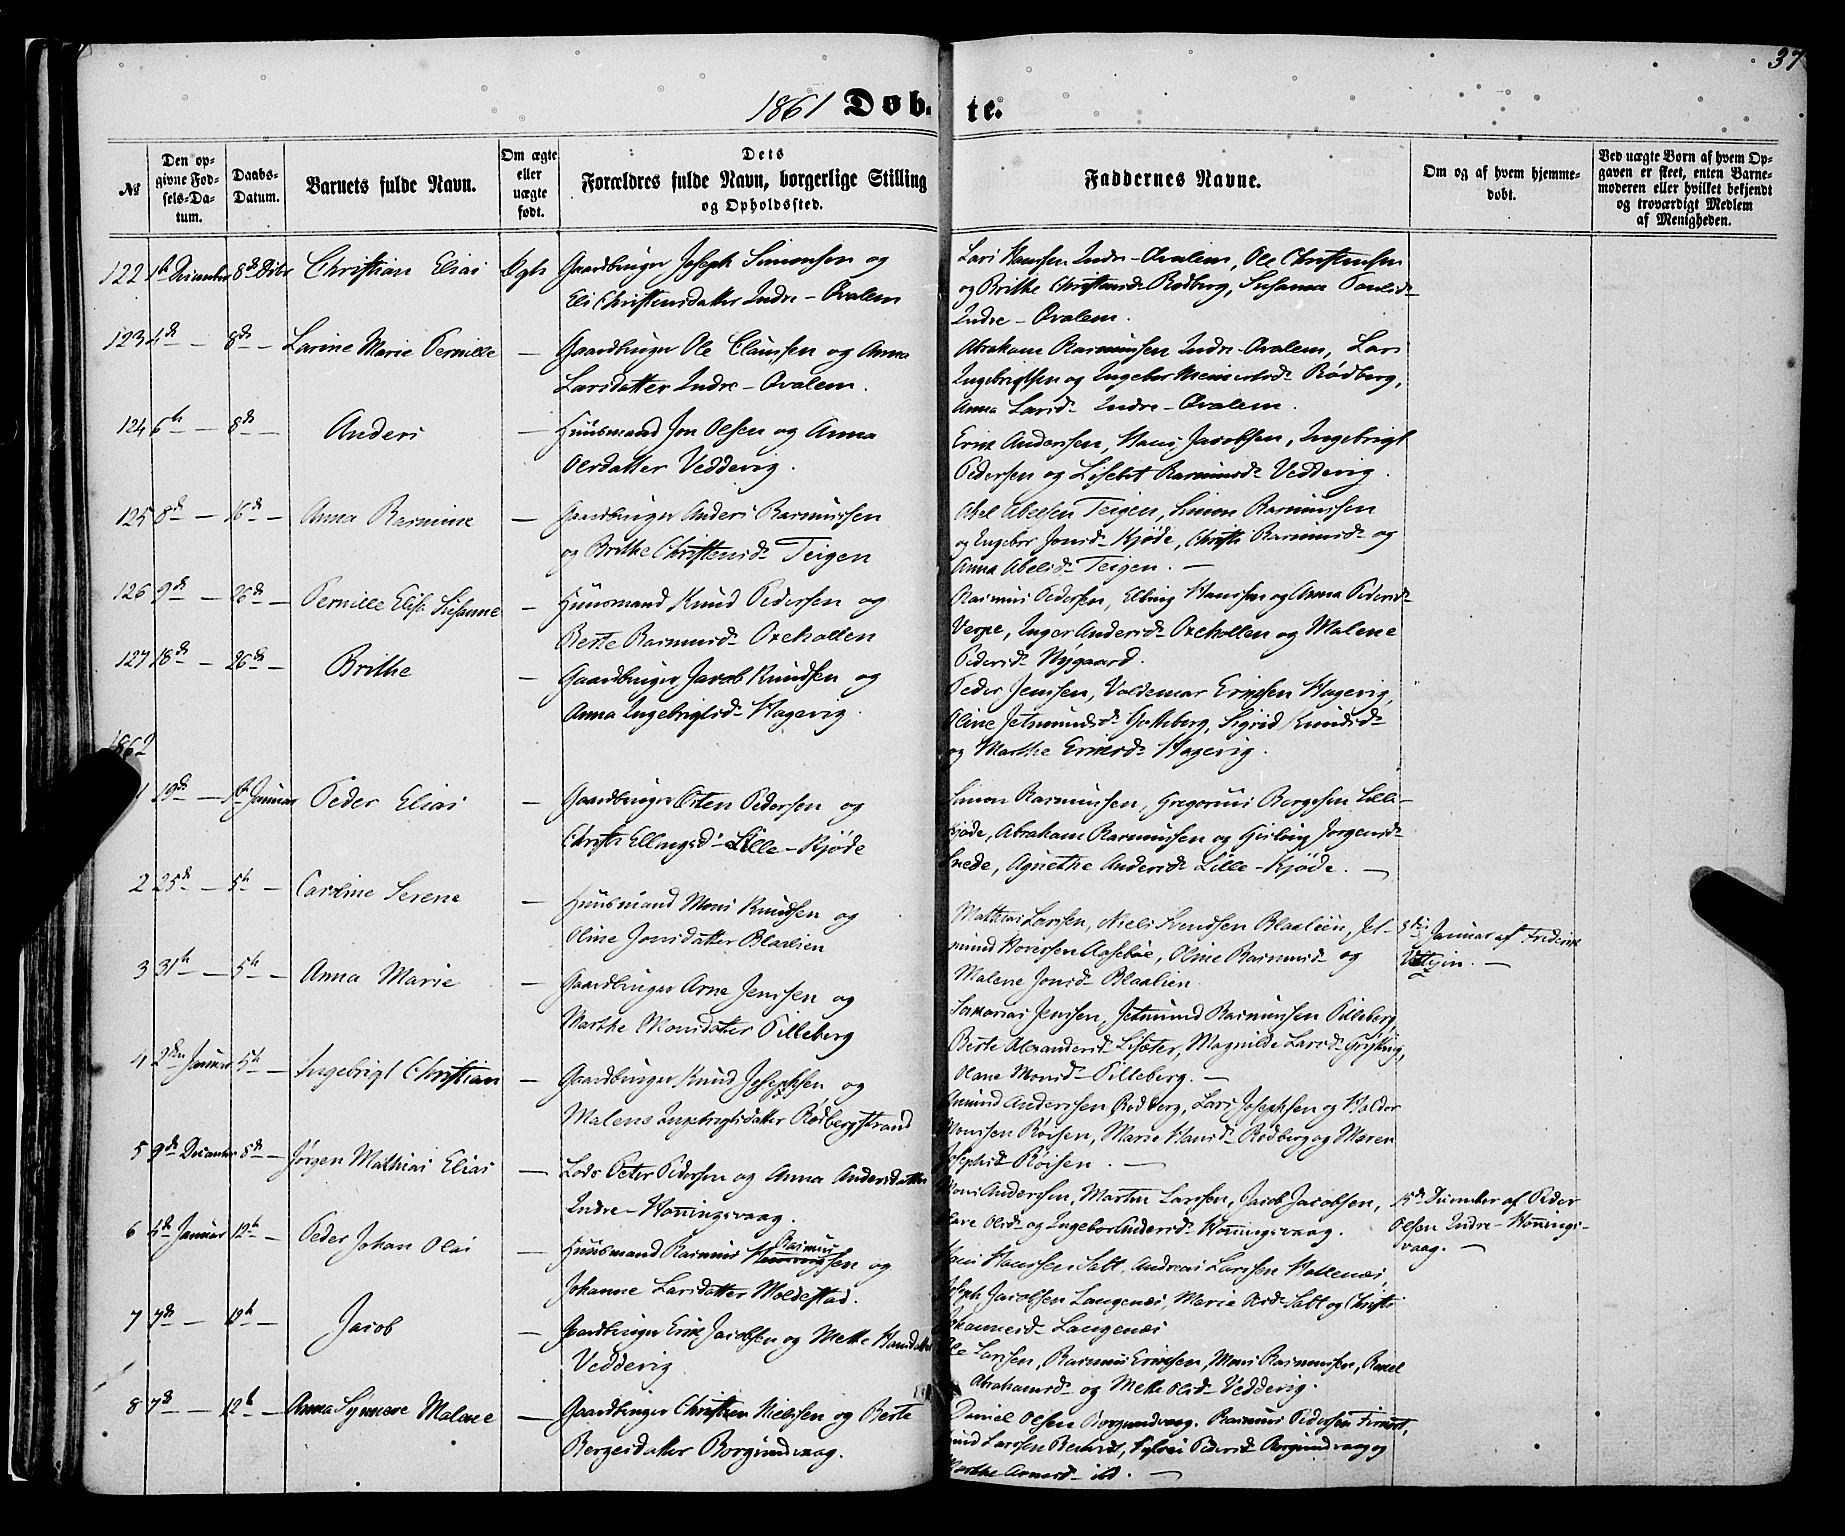 37
1861 Døb- te.
№
Den opgivne Fødsels-Datum.
Daabs-Datum.
Barnets fulde Navn.
Om ægte eller uægte født.
Dets
Forældres fulde Navn, borgerlige Stilling
og Opholdssted.
Faddernes Navne.
Om og af hvem hjemmedøbt.
Ved uægte Børn af hvem Opgaven er skeet, enten Barnemoderen eller hvilket bekjendt og troværdigt Medlem af Menigheden.
122 1ste December 8de Ditto Christian Elias Ægte Gaardbruger Joseph Simonsen og
Eli Christensdatter Indre-Qvalem
Lars Hanssen Indre-Qvalem, Ole Christensen
og Brithe Christensd: Rødberg, Susanna Poulsd:
Indre-Qvalem.
123 4de — 8de — Larine Marie Pernille — Gaardbruger Ole Claussen og Anna
Larsdatter Indre-Qvalem.
Abraham Rasmussen Indre-Qvalem, Lars
Ingebrigtsen og Ingebor Meinertsd: Rødberg,
Anna Larsd: Indre-Qvalem.
124 6te — 8de — Anders — Huusmand Jon Olsen og Anna
Olsdatter Veddevig.
Erik Anderssen, Hans Jacobsen, Ingebrigt
Pedersen og Lisebet Rasmusd: Veddevig.
125 8de — 16de — Anna Rasmine — Gaardbruger Anders Rasmussen
og Brithe Christensd: Teigen
Abel Abelsen Teigen, Simon Rasmussen
og Engebor Jonsd: Kjøde, Christi Rasmusd: og
Anna Abelsd: Teigen. —
126 9de — 26de — Pernille Elisa Susanne — Huusmand Knud Pedersen og
Berte Rasmusd: Oxehollen
Rasmus Pedersen, Elling Hanssen og Anna Pedersd:
Verpe, Inger Andersd: Oxehollen og Malene
Pedersd: Nygaard.
127 18de — 26de — Brithe — Gaardbruger Jacob Knudsen og
Anna Ingebrigtsd: Hagevig.
Peder Jenssen, Valdemar Eriksen Hagevig,
Oline Jetmundsd: Gotteberg, Sigrid Knudsd:
og Marthe Eriksd: Hagevig.
1862
1 19de — 1ste Januar Peder Elias — Gaardbruger Osten Pedersen og
Christi Ellingsd: Lille-Kjøde
Simon Rasmussen, Gregorius Børgesen Lille-
Kjøde, Abraham Rasmussen og Jørgensd:
Agnethe Andersd: Lille-Kjøde. —
2 25de — 5te — Caroline Serene — Huusmand Mons Knudsen og
Oline Jonsdatter Blaalien
Matthias Larssen, Niels Svendsen Blaalien, Jet-
mund Aasebøe, Oline Rasmusd: og
Malene Jonsd: Blaalien.
Januar af Frederik
3 31te — 5te — Anna Marie — Gaardbruger Arne Jenssen og
Marthe Monsdatter Tilleberg
Sakarias Jenssen, Jetmund Rasmussen Tilleberg,
Berte Alexandersd: Lisæter, Magnilde Larsd:
Olane Monsd: Tilleberg. —
4 2den Januar 5te — Ingebrigt Christian — Gaardbruger Knud Josephsen og
Malene Ingebrigtsdatter Rødbergstrand
Amund Anderssen Rødberg, Lars Josephsen og Haldor
Monssen Røisen, Marie Hansd: Rødberg og Maren
Josephsd: Røisen. —
5 9de December 5te — Jørgen Mathias Elias — Lods Peter Pedersen og Anna Andersdatter
Indre-Honningsvaag.
Mons Anderssen, Martin Larssen, Jacob Jacobsen,
Olsd: og Ingebor Andersd: Honningsvaag.
15de December af Peder
Olsen Indre-Honnings-
vaag. —
6 4de Januar 12te — Peder Johan Olai — Huusmand Rasmus Rasmussen og
Johanne Larsdatter Moldestad.
Hans Hanssen Salt, Andreas Larssen Hollenæs,
Joseph Jacobsen Langenæs, Marie Olsd: Salt og Christi
Johannesd: Langenæs
7 7de — 12te — Jacob — Gaardbruger Erik Jacobsen og Mette Hansdatter
Veddevig
Ole Larssen, Rasmus Eriksen, Mons Rasmussen,
Abrahamsd: og Mette Olsd: Veddevig.
8 7de — 12te — Anna Synneve Malene — Gaardbruger Christian Nielssen og Berte
Børgesdatter Borgundvaag.
Daniel Olsen Borgundvaag, Rasmus Pedersen
Knud Larssen Pedersd: Borgundvaag og
Marthe Arnesd: ibd. —